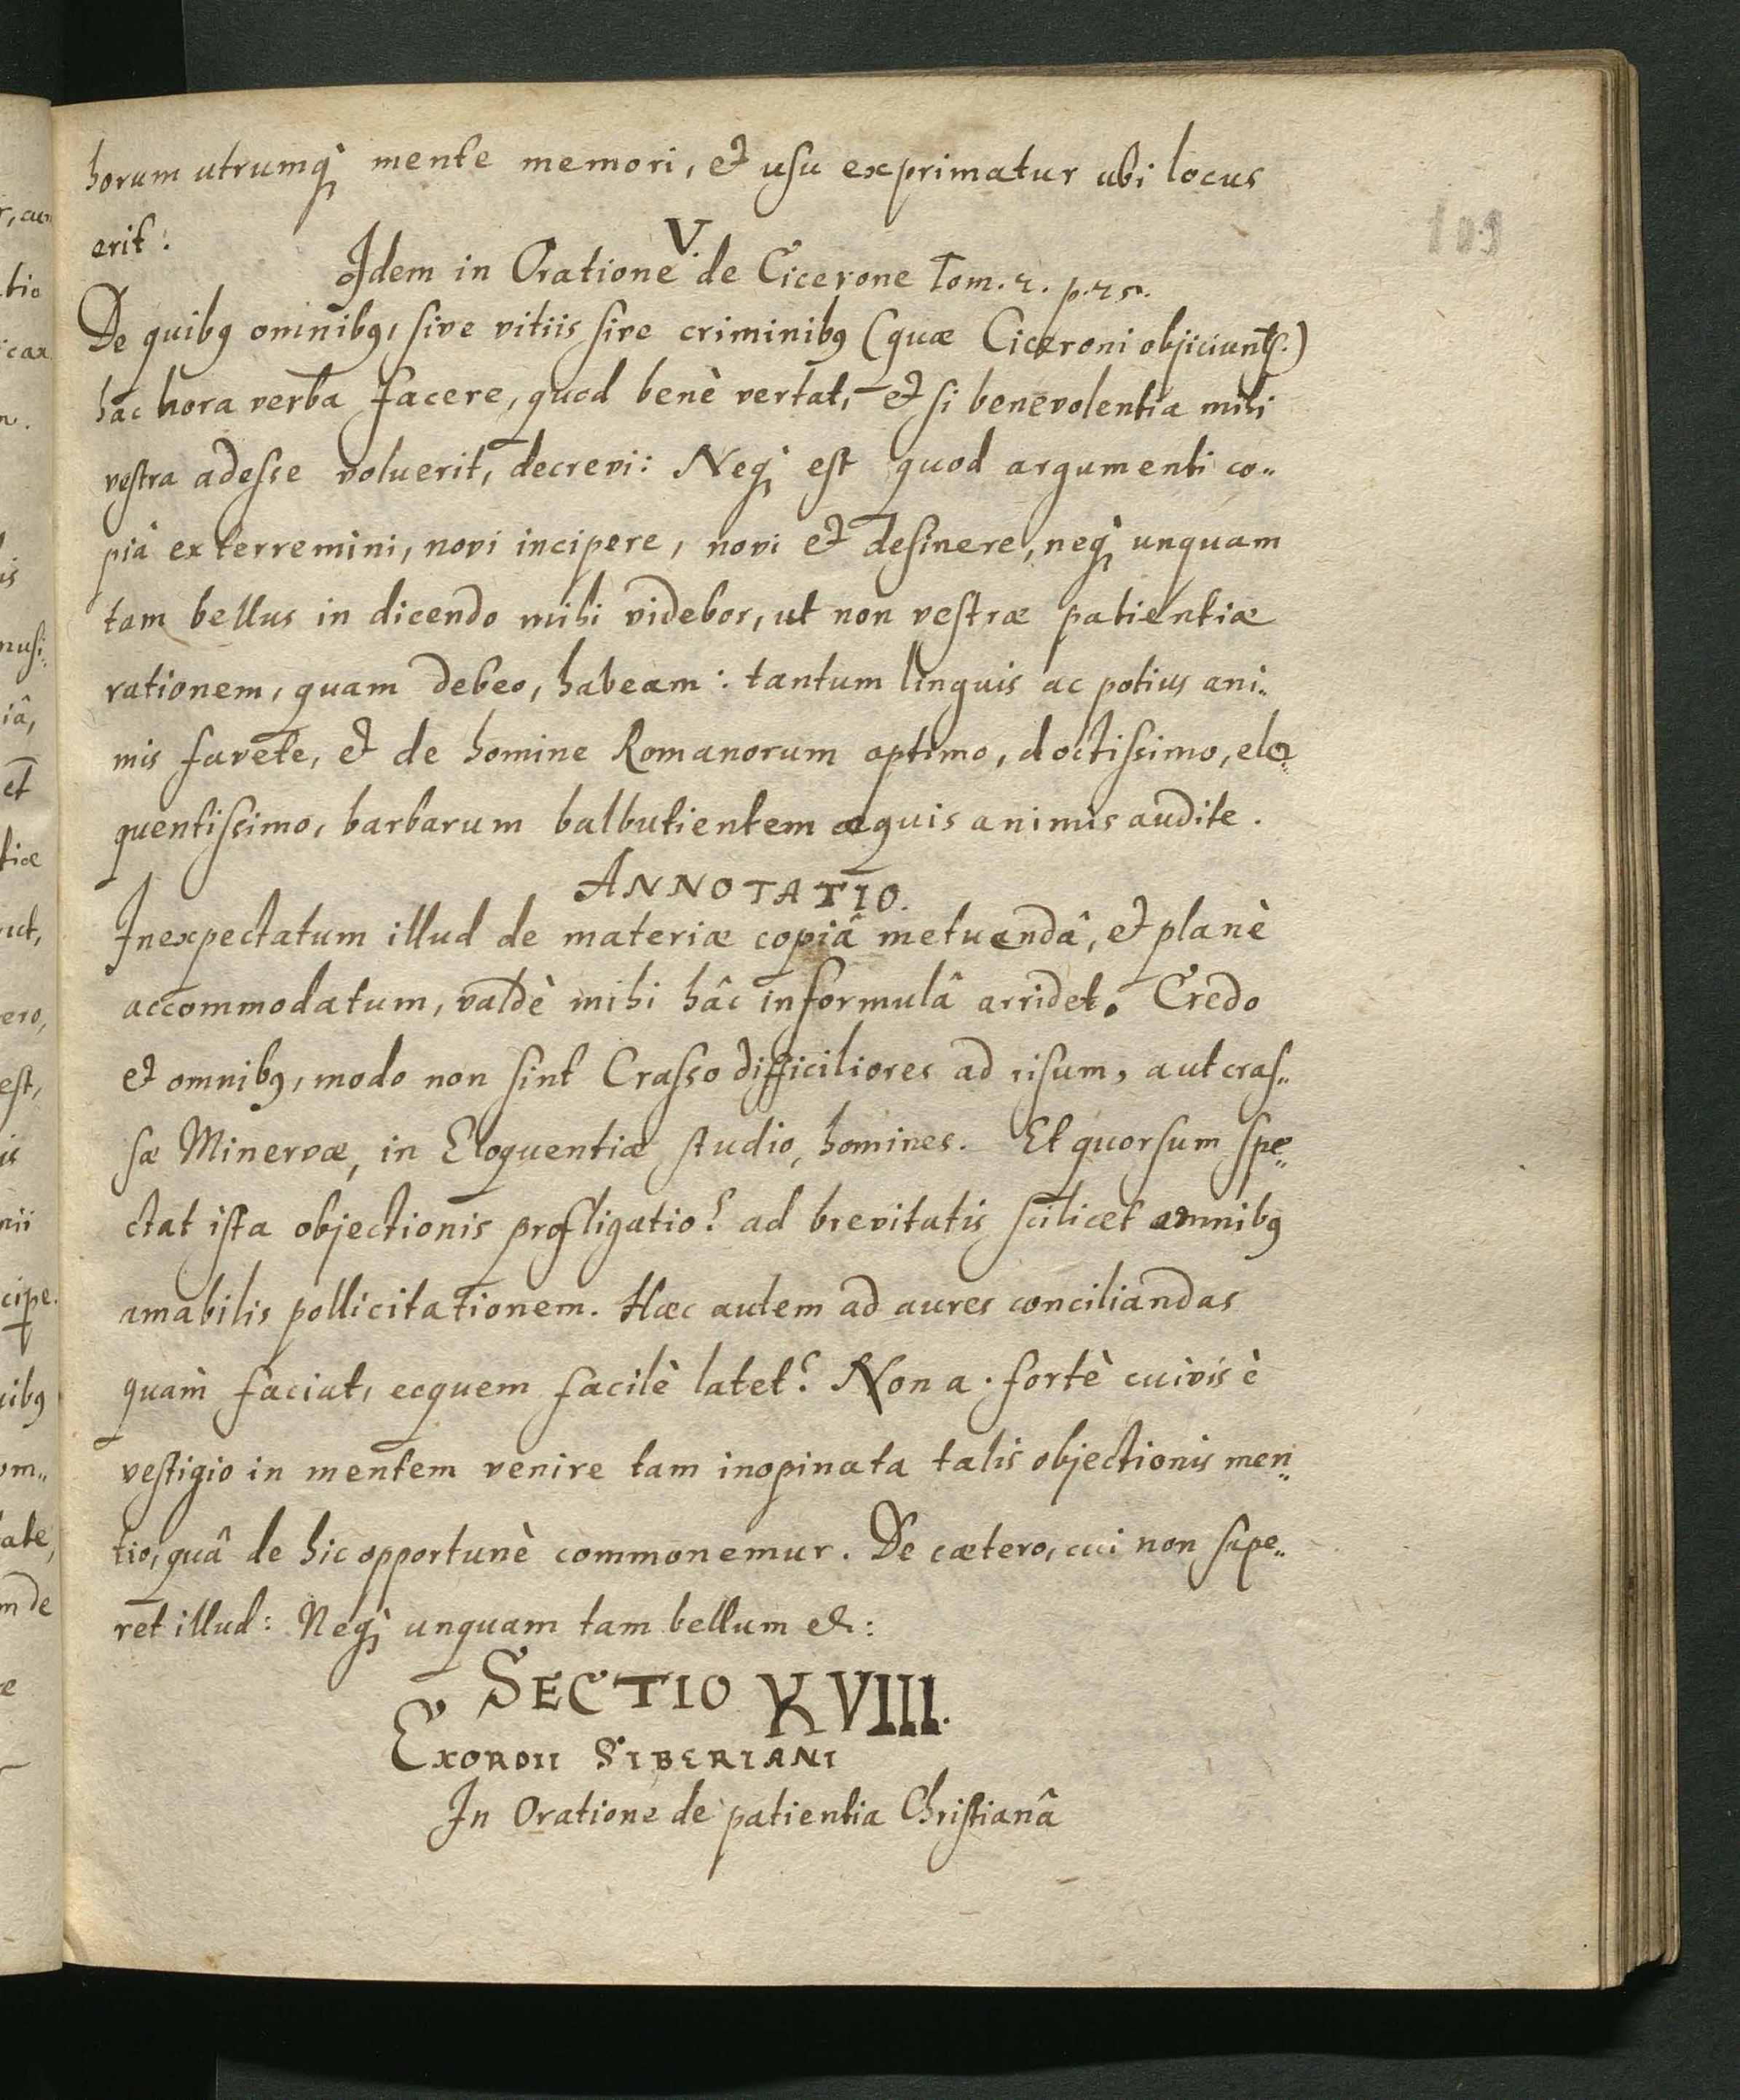 horum utrumq́ꝫ mente memori, et usu exprimatur ubi locus
erit.
V.
Idem in Oratione de Cicerone Tom. 2.
De quibꝰ omnibꝰ, sive vitiis sive criminibꝰ (quæ Ciceroni objiciunt᷑.)
hac hora verba facere, quod benè vertat, et si benevolentia mihi
vestra adesse voluerit, decrevi: Neqꝫ est quod argumenti co„
pià exterremini, novi incipere, novi et desinere, neqꝫ unquam
tam bellus in dicendo mihi videbor, ut non vestræ patientiæ
rationem, quam debeo, habeam: tantum linguis ac potius ani„
mis favete, et de homine Romanorum optimo, doctissimo, elo„
quentissimo, barbarum balbutientem æquis animis audite.
ANNOTATIO.
Inexpectatum illud de materiæ copiâ metuendâ, et planè
accommodatum, valdè mihi hâc in formulâ arridet. Credo
et omnibꝰ, modo non sint Crasso difficiliores ad risum, aut cras„
sæ Minervæ, in Eloquentiæ studio, homines. Et quorsum spe„
ctat ista objectionis profligatio? ad brevitatis scilicet omnibꝰ
amabilis pollicitationem. Hæc autem ad aures conciliandas
quàm faciat, ecquem facilè latet? Non a. fortè cuivis è
vestigio in mentem venire tam inopinata talis objectionis men„
tio, quâ de hic opportunè commonemur. De cætero, cui non sape„
ret illud: Neqꝫ unquam tam bellum &:
SECTIO XVIII.
EXORDII SIBERIANI
In Oratione de patientia Christianâ
109